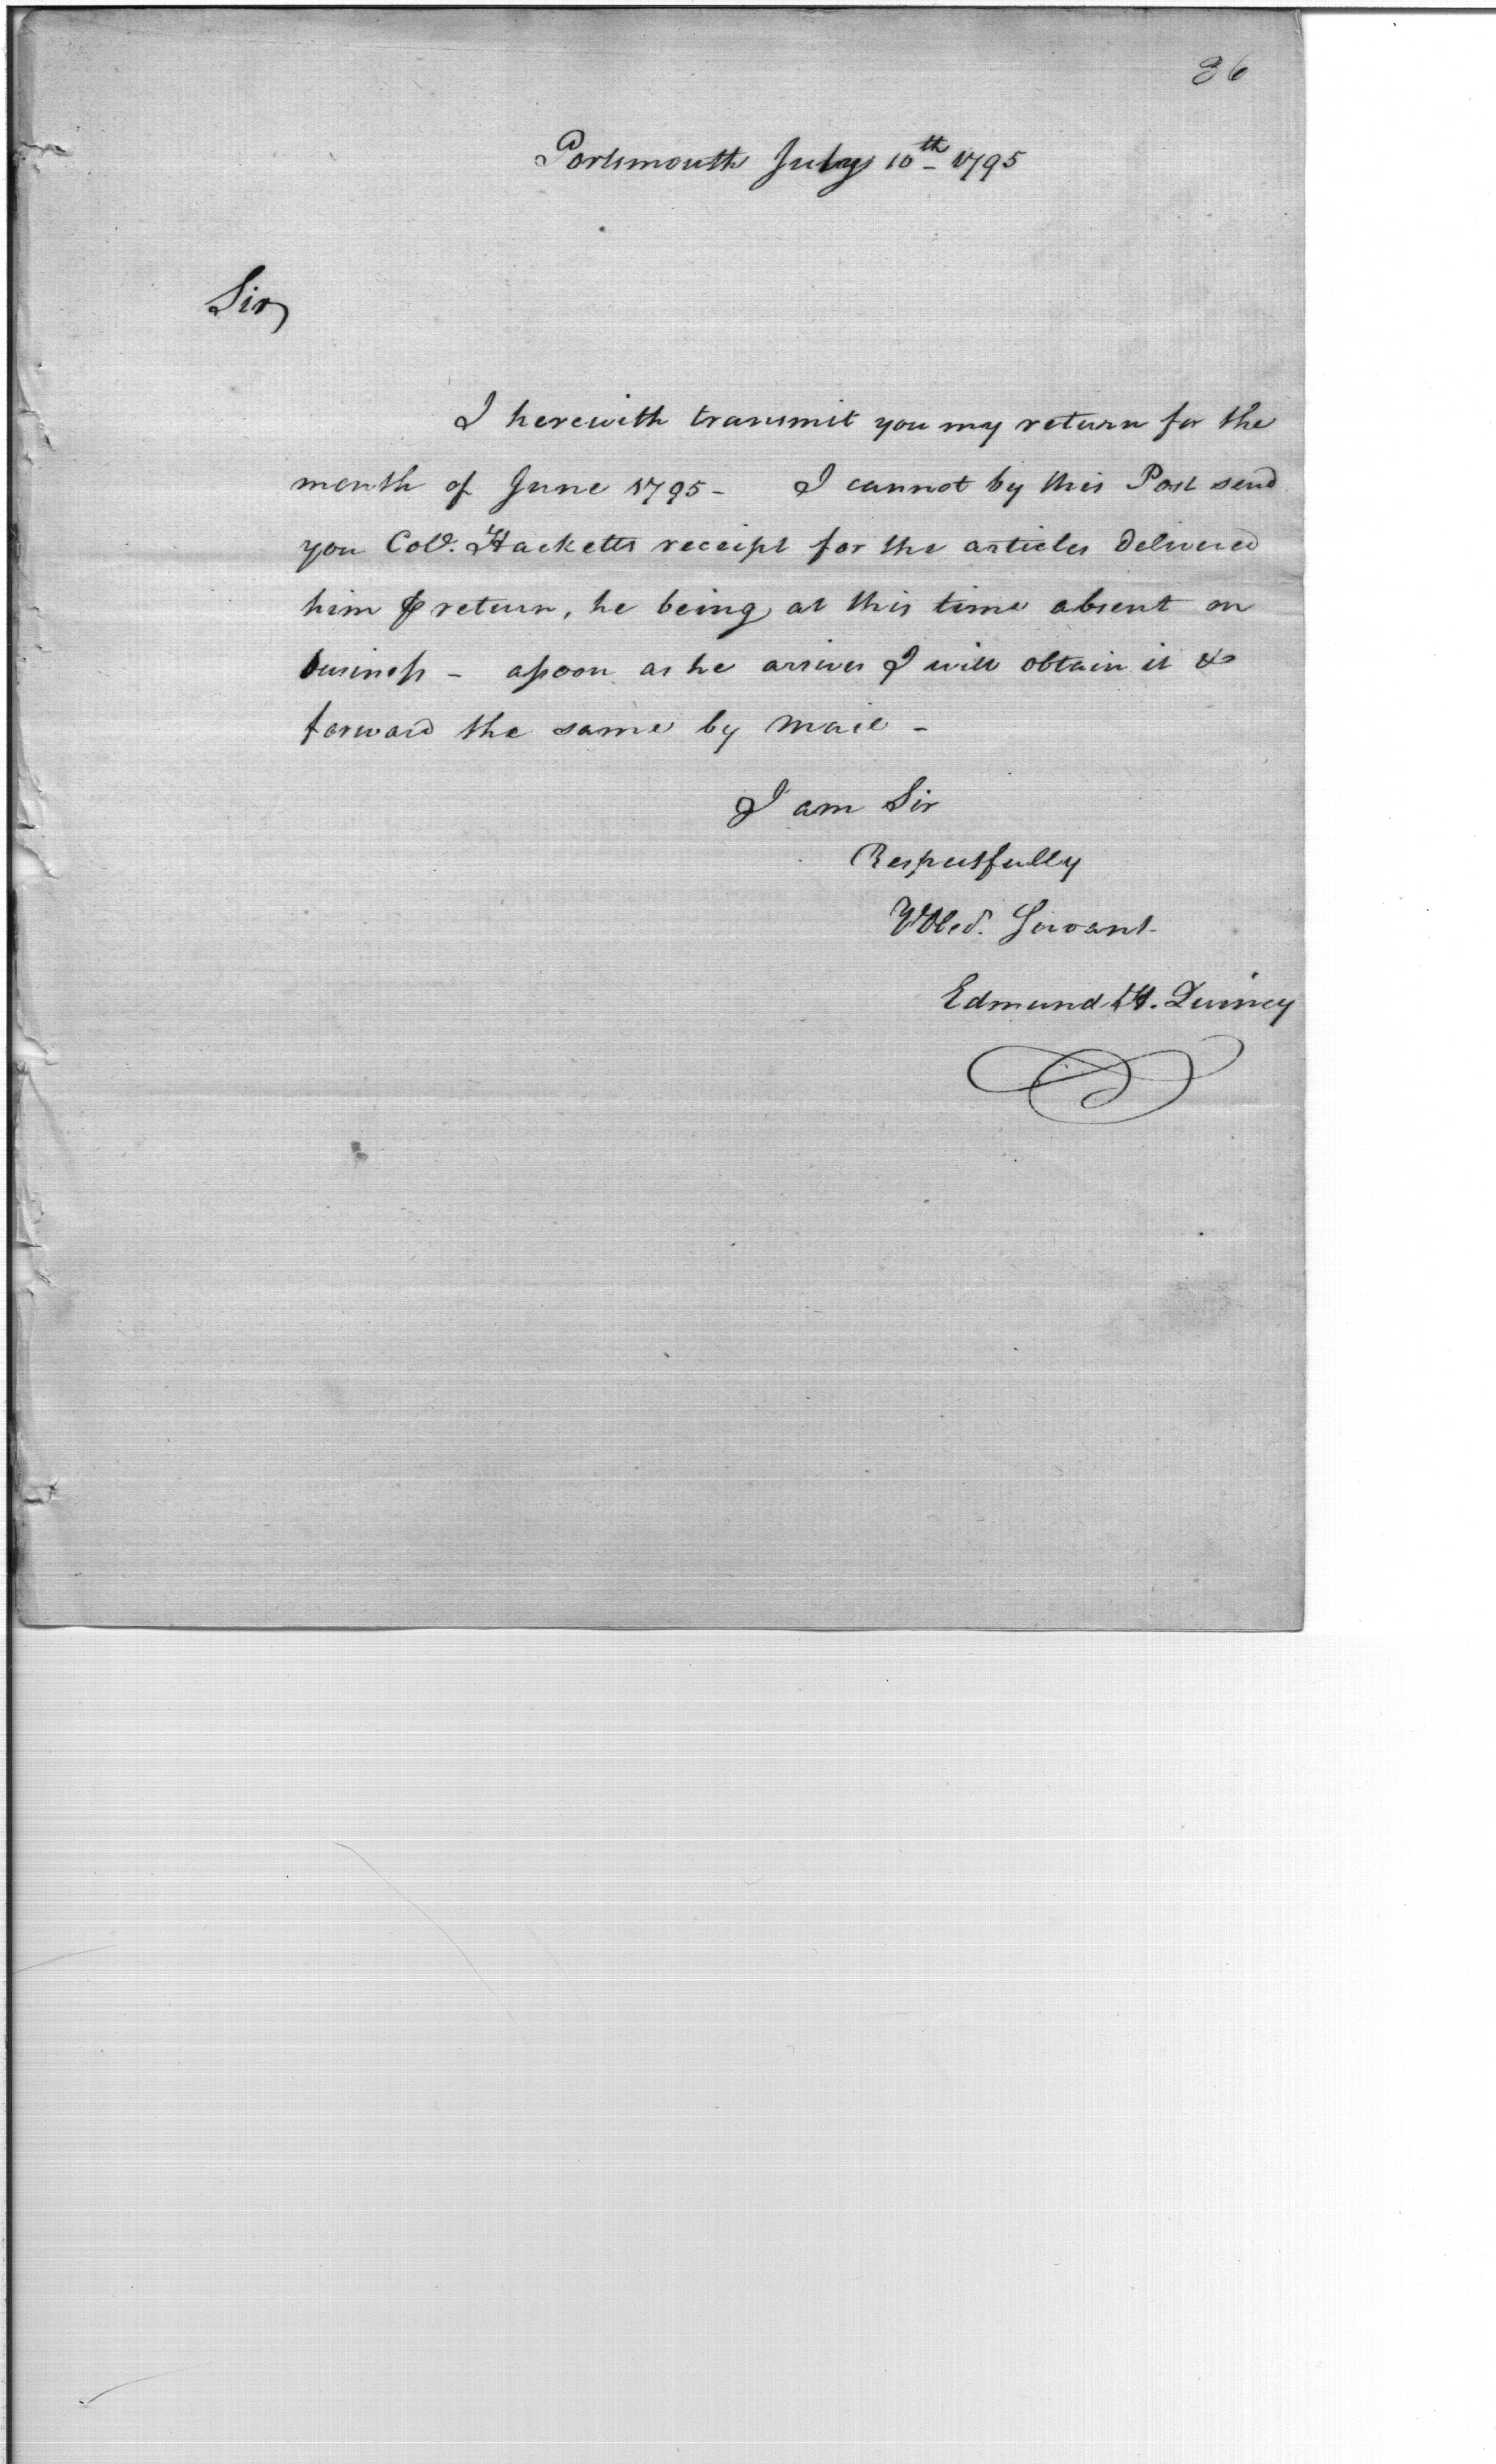 36
Portsmouth July 10th 1795
Sir,
I herewith transmit you my return for the
month of June 1795 - I cannot by this Post send
you Colo. Hacketts receipt for the articles delivered
him ⅌ return, he being at this time absent on
business - assoon as he arrives I will obtain it &
forward the same by Mail -
I am Sir
Respectfully
YObed. Servant
Edmund H. Quincy